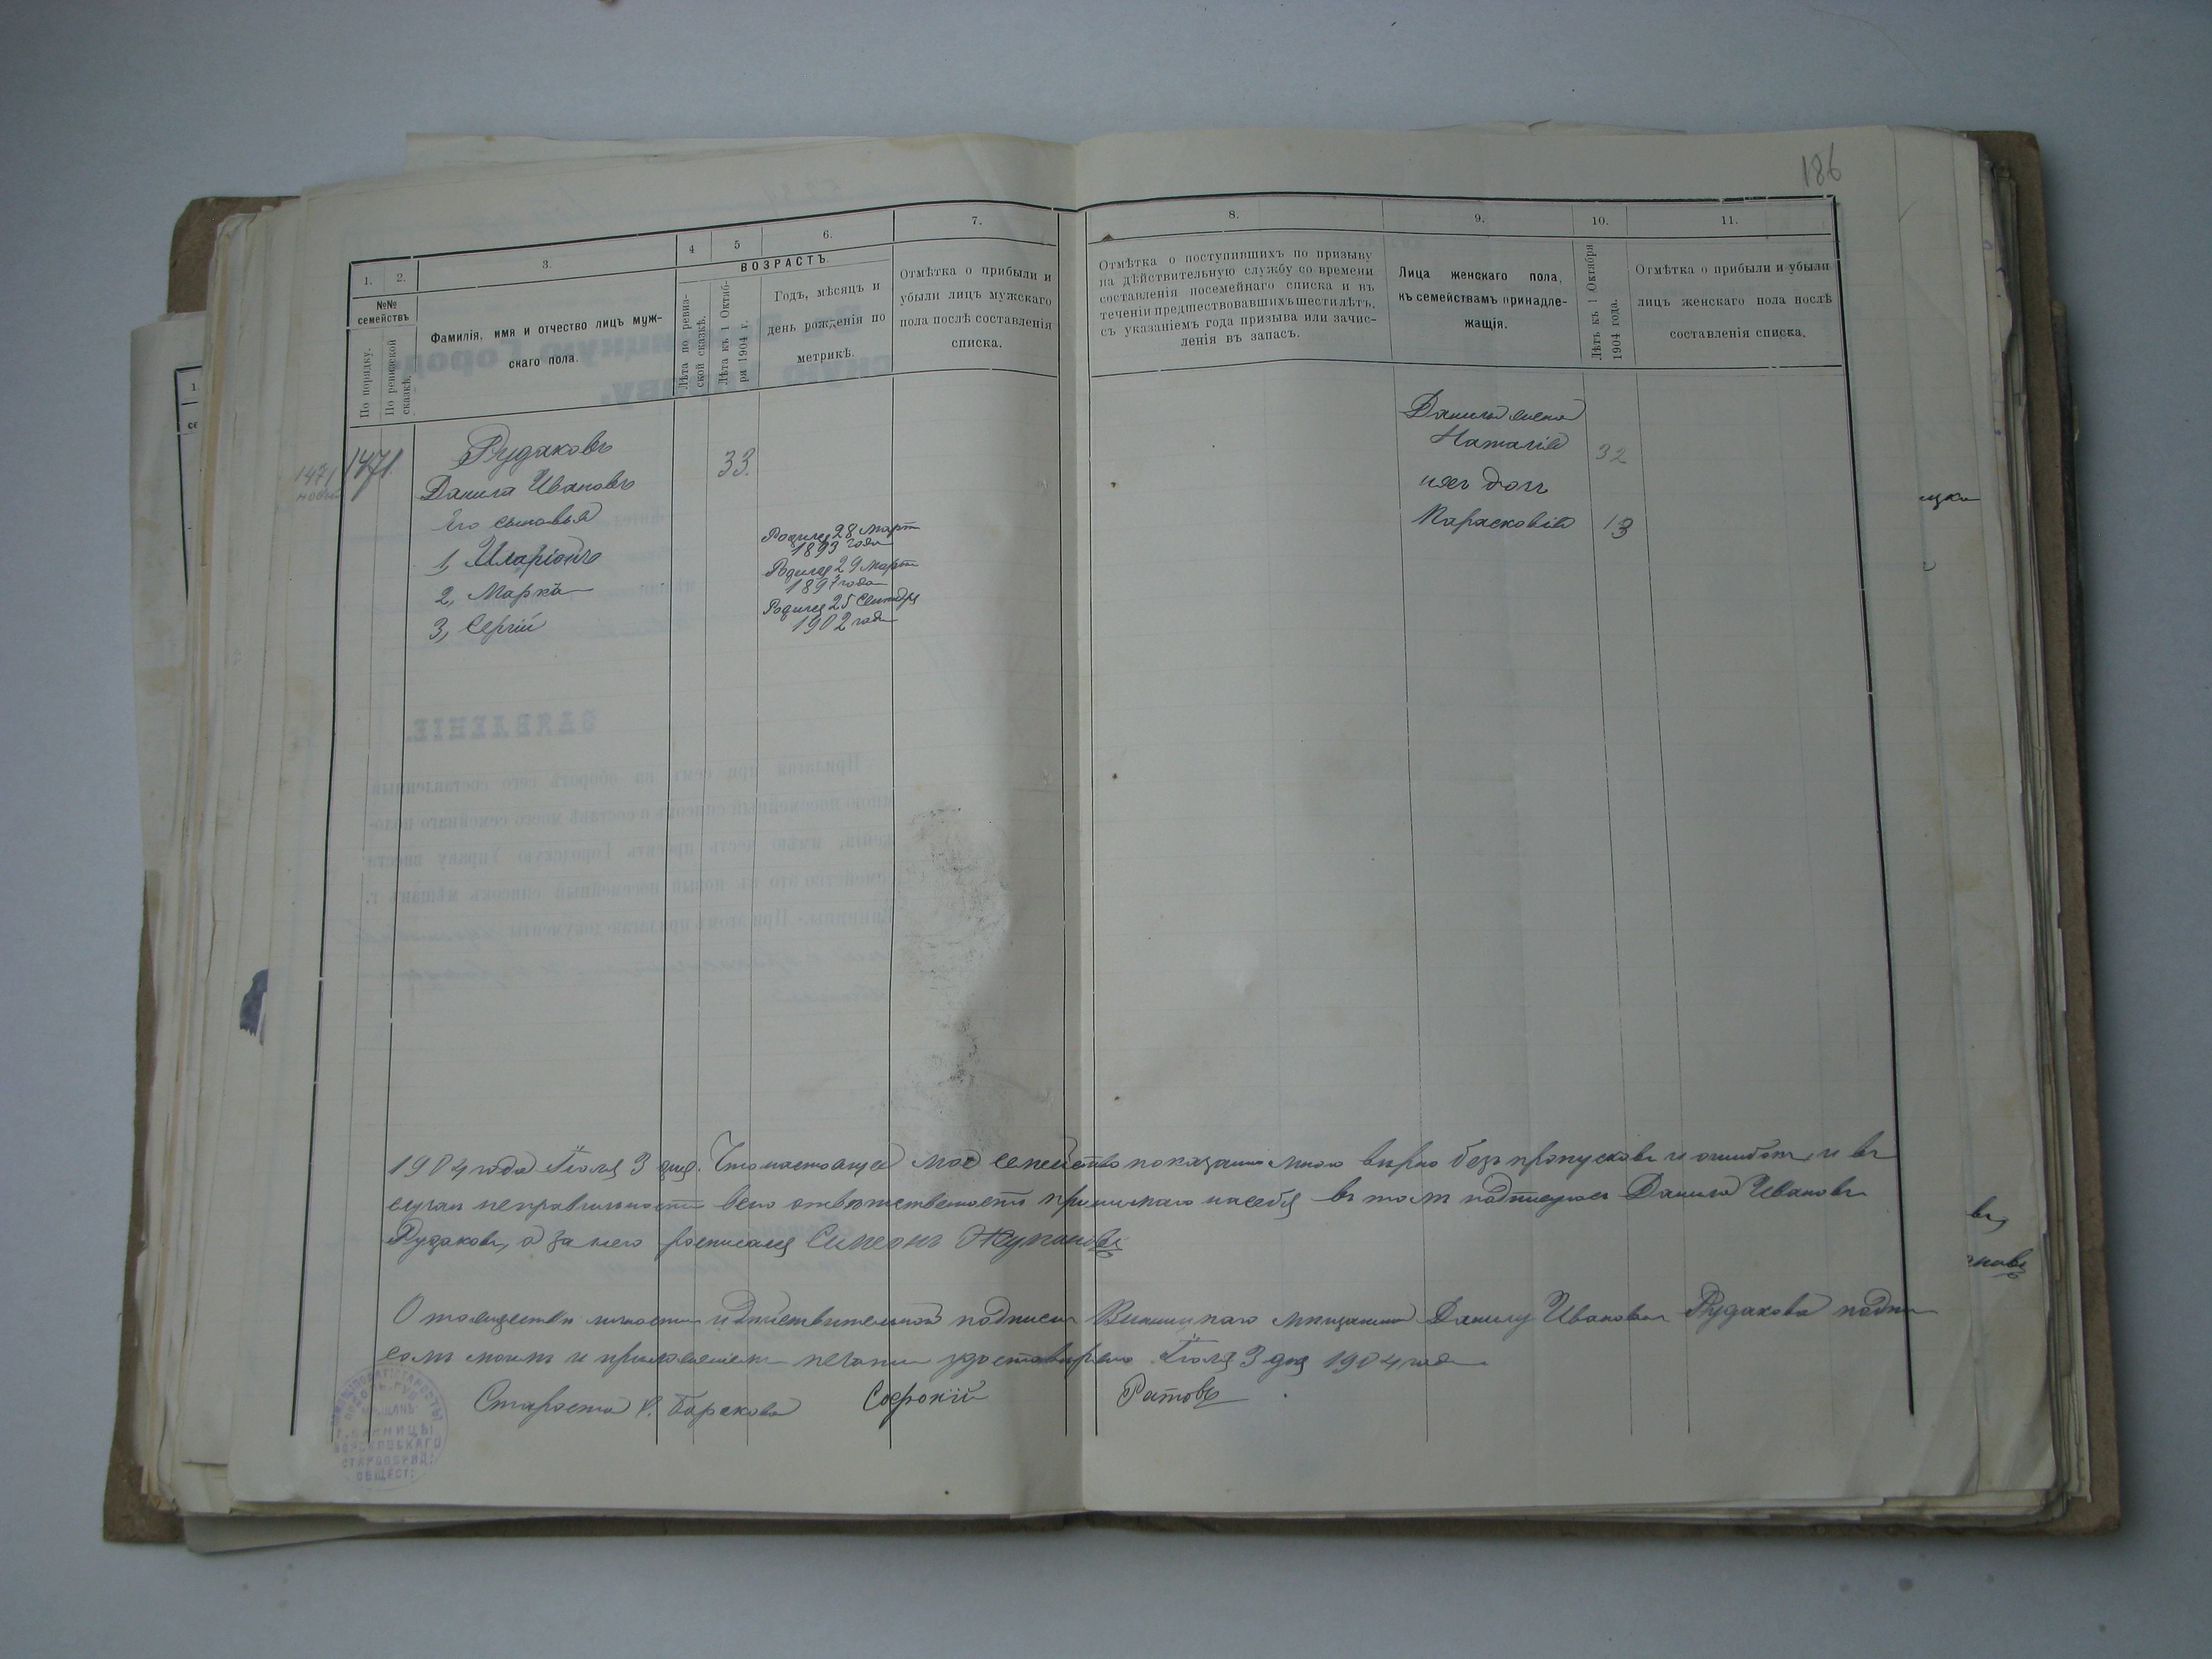 186
1.
2.
3.
4
5
6.
7.
8.
9.
10.
11.
№№
семействъ
По порядку.
По ревизской
сказкѣ.
Фамилія, имя и отчество лицъ муж-
скаго пола.
ВОЗРАСТЪ.
Лѣта по ревиз-
ской сказкѣ.
Лѣта къ 1 Октяб-
ря 1904 г.
Годъ, мѣсяцъ и
день рожденія по
метрикѣ.
Отмѣтка о прибыли и
убыли лицъ мужскаго
пола послѣ составленія
списка.
Отмѣтка о поступившихъ по призыву
на дѣйствительную службу со времени
составленія посемейнаго списка и въ
теченіи предшествовавшихъ шести лѣтъ,
съ указаніемъ года призыва или зачис-
ленія въ запасъ.
Лица женскаго пола,
къ семействамъ принадле-
жащія.
Лѣтъ къ 1 Октября
1904 года.
Отмѣтка о прибыли и убыли
лицъ женскаго пола послѣ
составленія списка.
1471
1471
Рудаковъ
Данила Ивановъ
33.
Его сыновья
1, Иларіонъ
Родился 28 март
1893 года
2, Марка
Родился 29 март
1897 года
3, Сергій
Родился 25 Сентября
1902 года
Данила жена
Наталія 32
ихъ дочь
Парасковія 13
1904 года Іюля 3 дня. Что настоящее мое семейство показанно мною вѣрно безъ пропусковъ и ошибокъ, и въ
случаи неправильности всю отвѣтственность принимаю на себя въ томъ подписуюсь Данила Ивановъ
Рудаковъ, а за него росписался Симеонъ Жупановъ
О тождествѣ личности и дѣйствительной подписи Винницкаго мѣщанина Данилу Иванова Рудакова подпи
сомъ моимъ и приложеніемъ печати удостовѣряю Іюля 3 дня 1904 года
Староста Борскова Софроній Ратовъ
МѢЩАНЪ
Г. ВИННИЦЫ
СТАРООБРЯД.
ОБЩЕСТ.
ЗАЯВЛЕНІЕ.